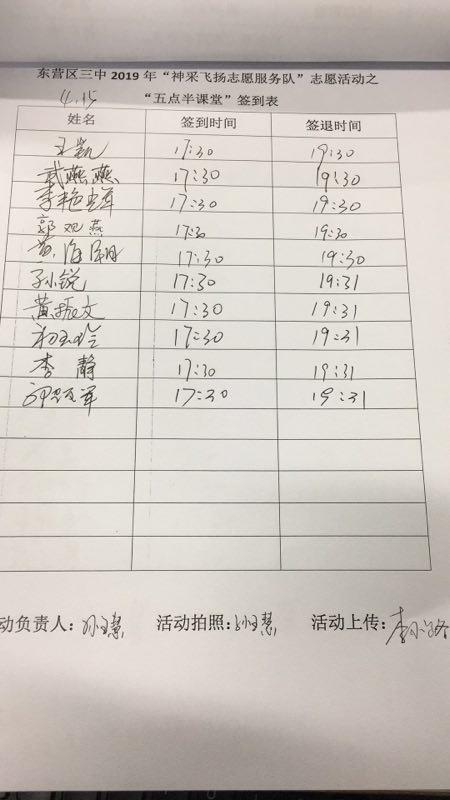 东营区三中 2019 年“神采飞扬志愿服务队”志愿活动之
4.15 “五点半课堂”签到表
姓名 签到时间 签退时间
王凯 17:30 19:30
武燕燕 17:30 19:30
李艳军 17:30 19:30
郭观燕 17:30 19:30
黄海 17:30 19:30
孙锐 17:30 19:31
黄振文 17:30 19:31
初玉玲 17:30 19:31
李静 17:30 19:31
17:30 19:31
动负责人：孙玉慧 活动拍照：孙玉慧 活动上传：李